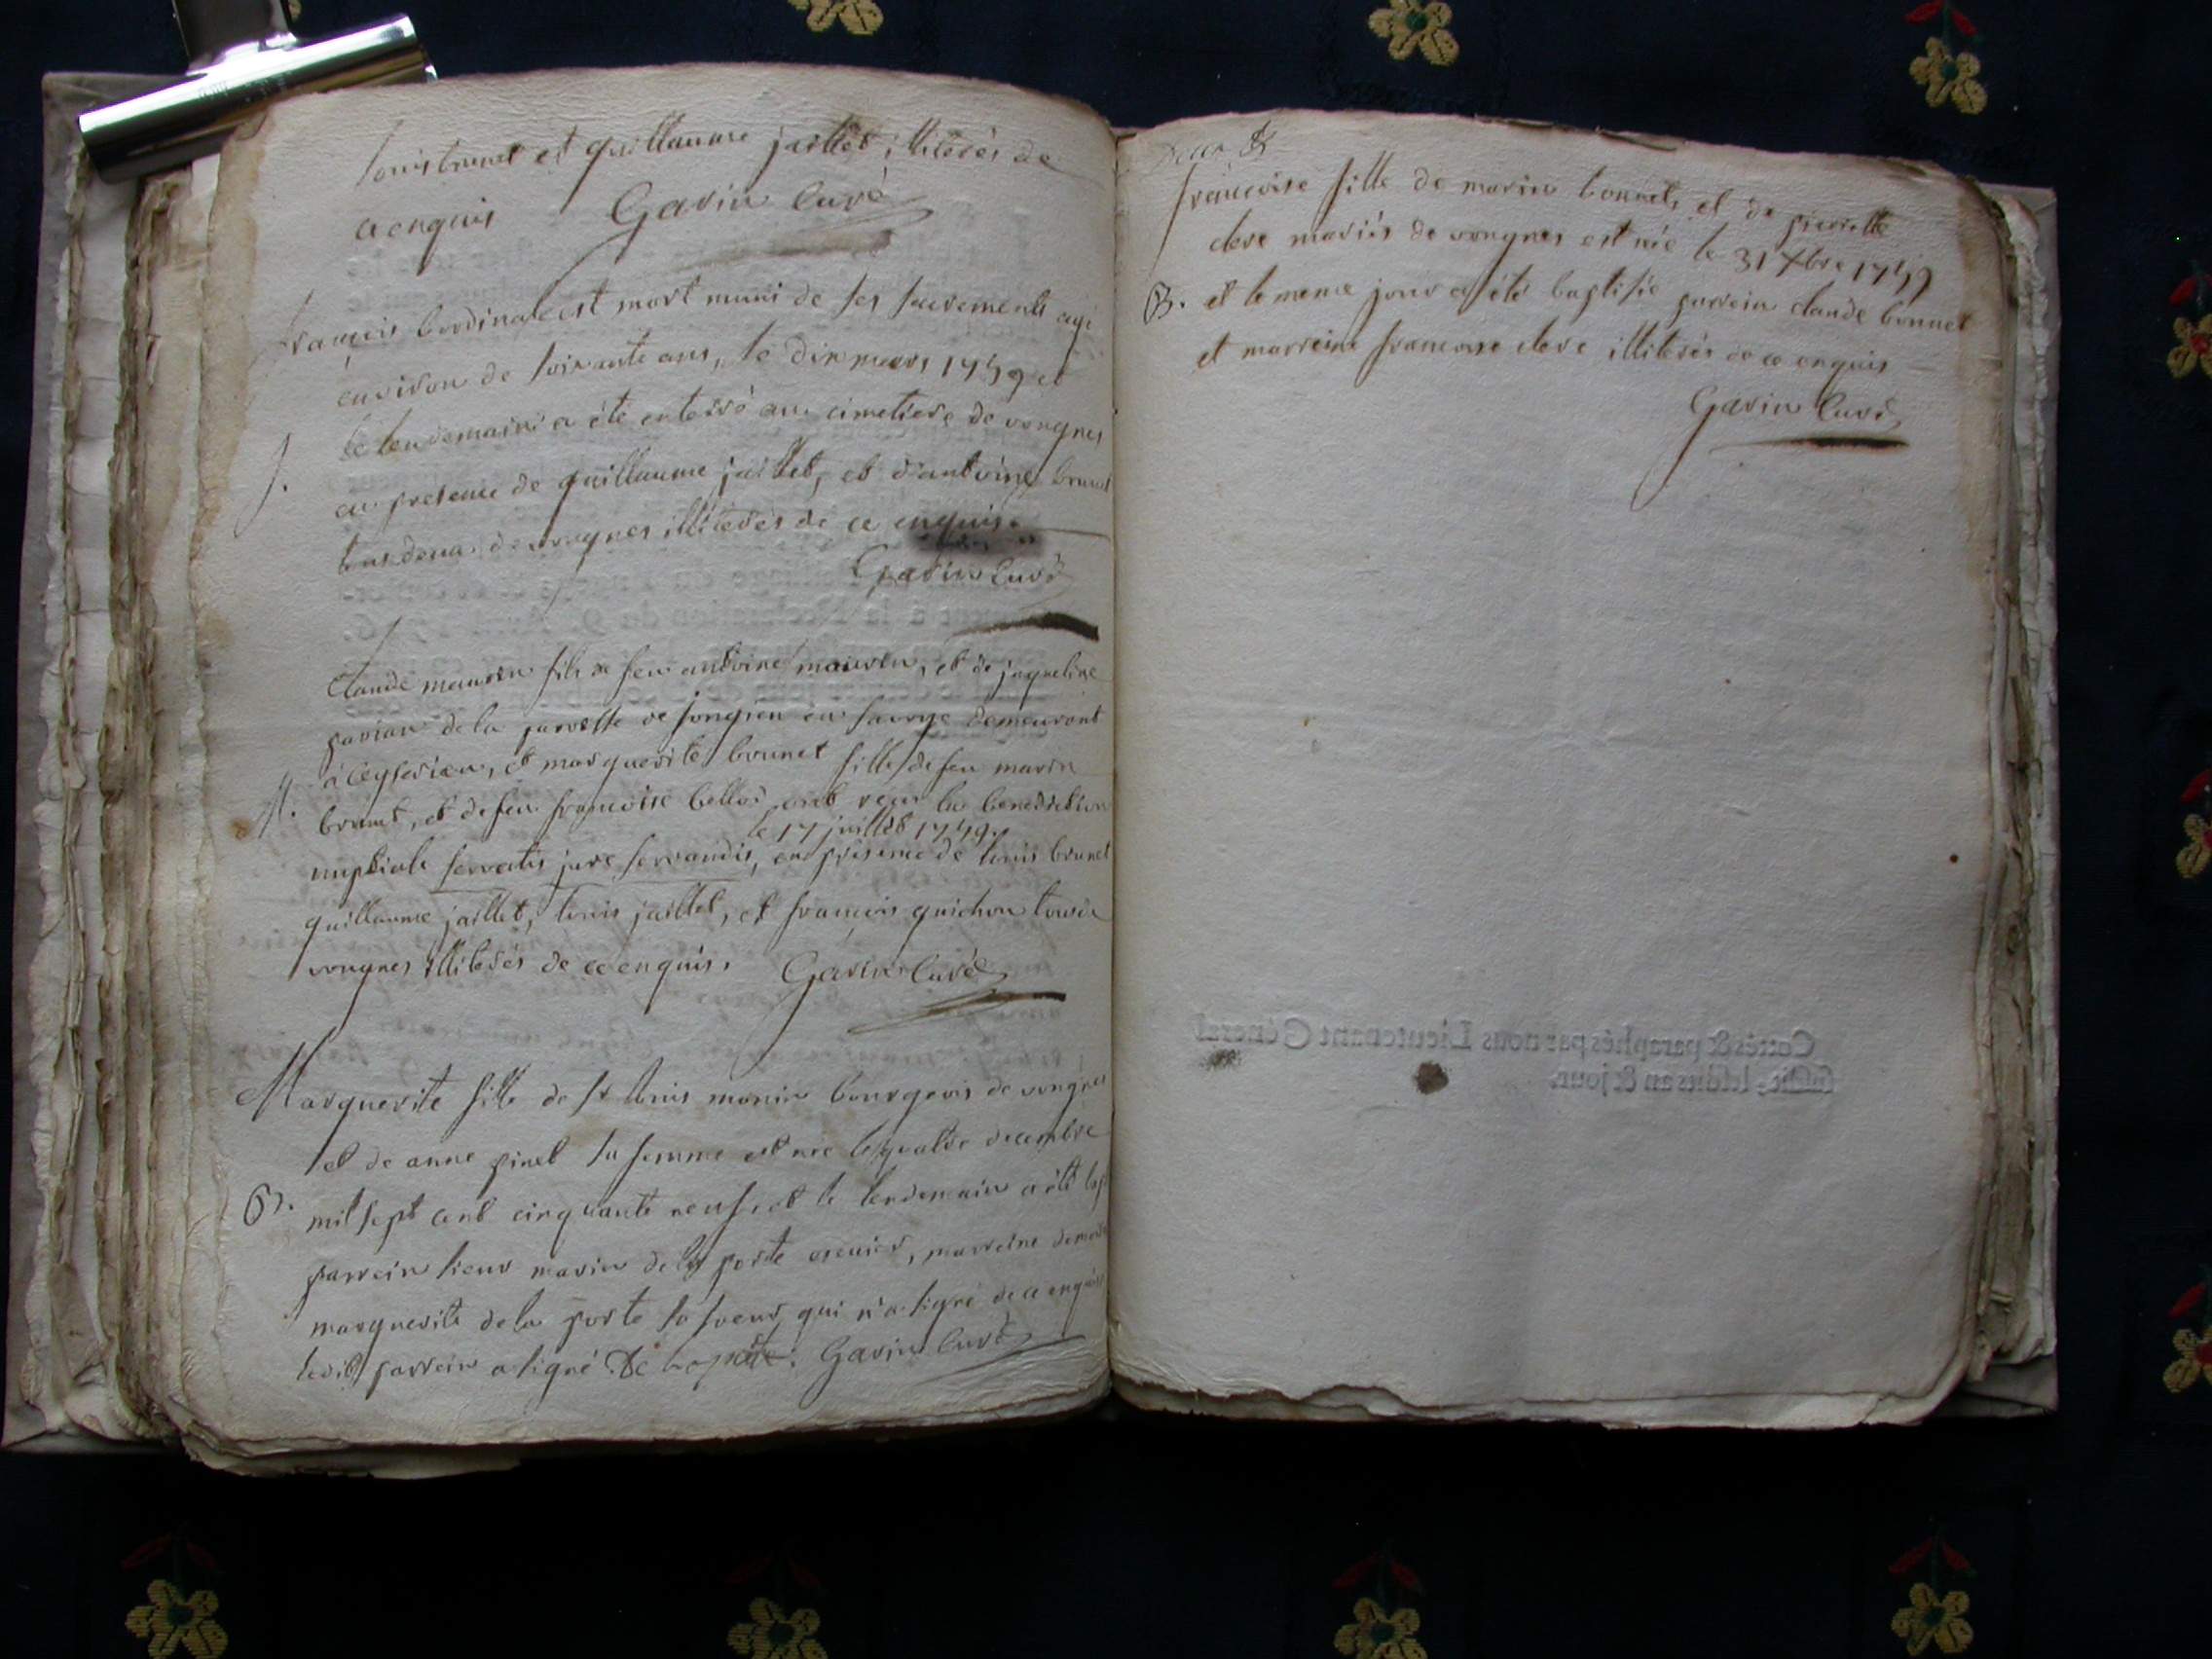 louis brunet et guillaume jaillet illiterés de
ce enquis Gavin Curé
françois bordinat est mort muni de ses sacrements agé
environ de soixante ans, le dix mars 1759 et
le lendemain a été enterré au cimetiere de vongnes
S.
en presence de guillaume jaillet, et d'antoine brunet
tous deux de vongnes illiterés de ce enquis.
Gavin Curé
Claude mauvin fils de feu antoine mauvin, et de jaqueline
pavian de la paroisse de jongieu en savoye demeurant
à Ceyserieu, et marguerite brunet fille de feu marin
M.
brunet, et de feu francoise bellod ont reçu la benediction
le 17 juillet 1759.
nuptiale servatis jure servandis, en presence de louis brunet
guillaume jaillet, louis jaillet, et françois guichon tous de
vongnes illiterés de ce enquis. Gavin Curé
Marguerite fille de sr louis monin bourgeois de vongnes
et de anne pinet sa femme est née le quatre decembre
B.
mil sept cent cinquante neuf et le lendemain a été bapt
parrein sieur marin de la porte ecuier, marreine demoi
marguerite de la porte sa soeur, qui n'a signé de ce enquise
ledit parrein a signé De la porte. Gavin Curé
francoise fille de marin bonnet, et de pierrette
clere mariés de vongnes est née le 31 Xbre 1759
B. et le meme jour a été baptisée parrein claude bonnet
et marreine francoise clere illiterés de ce enquis
Gavin Curé
Cottés & paraphés par nous Lieutenant Géneral
susdit, lesdits an & jour.